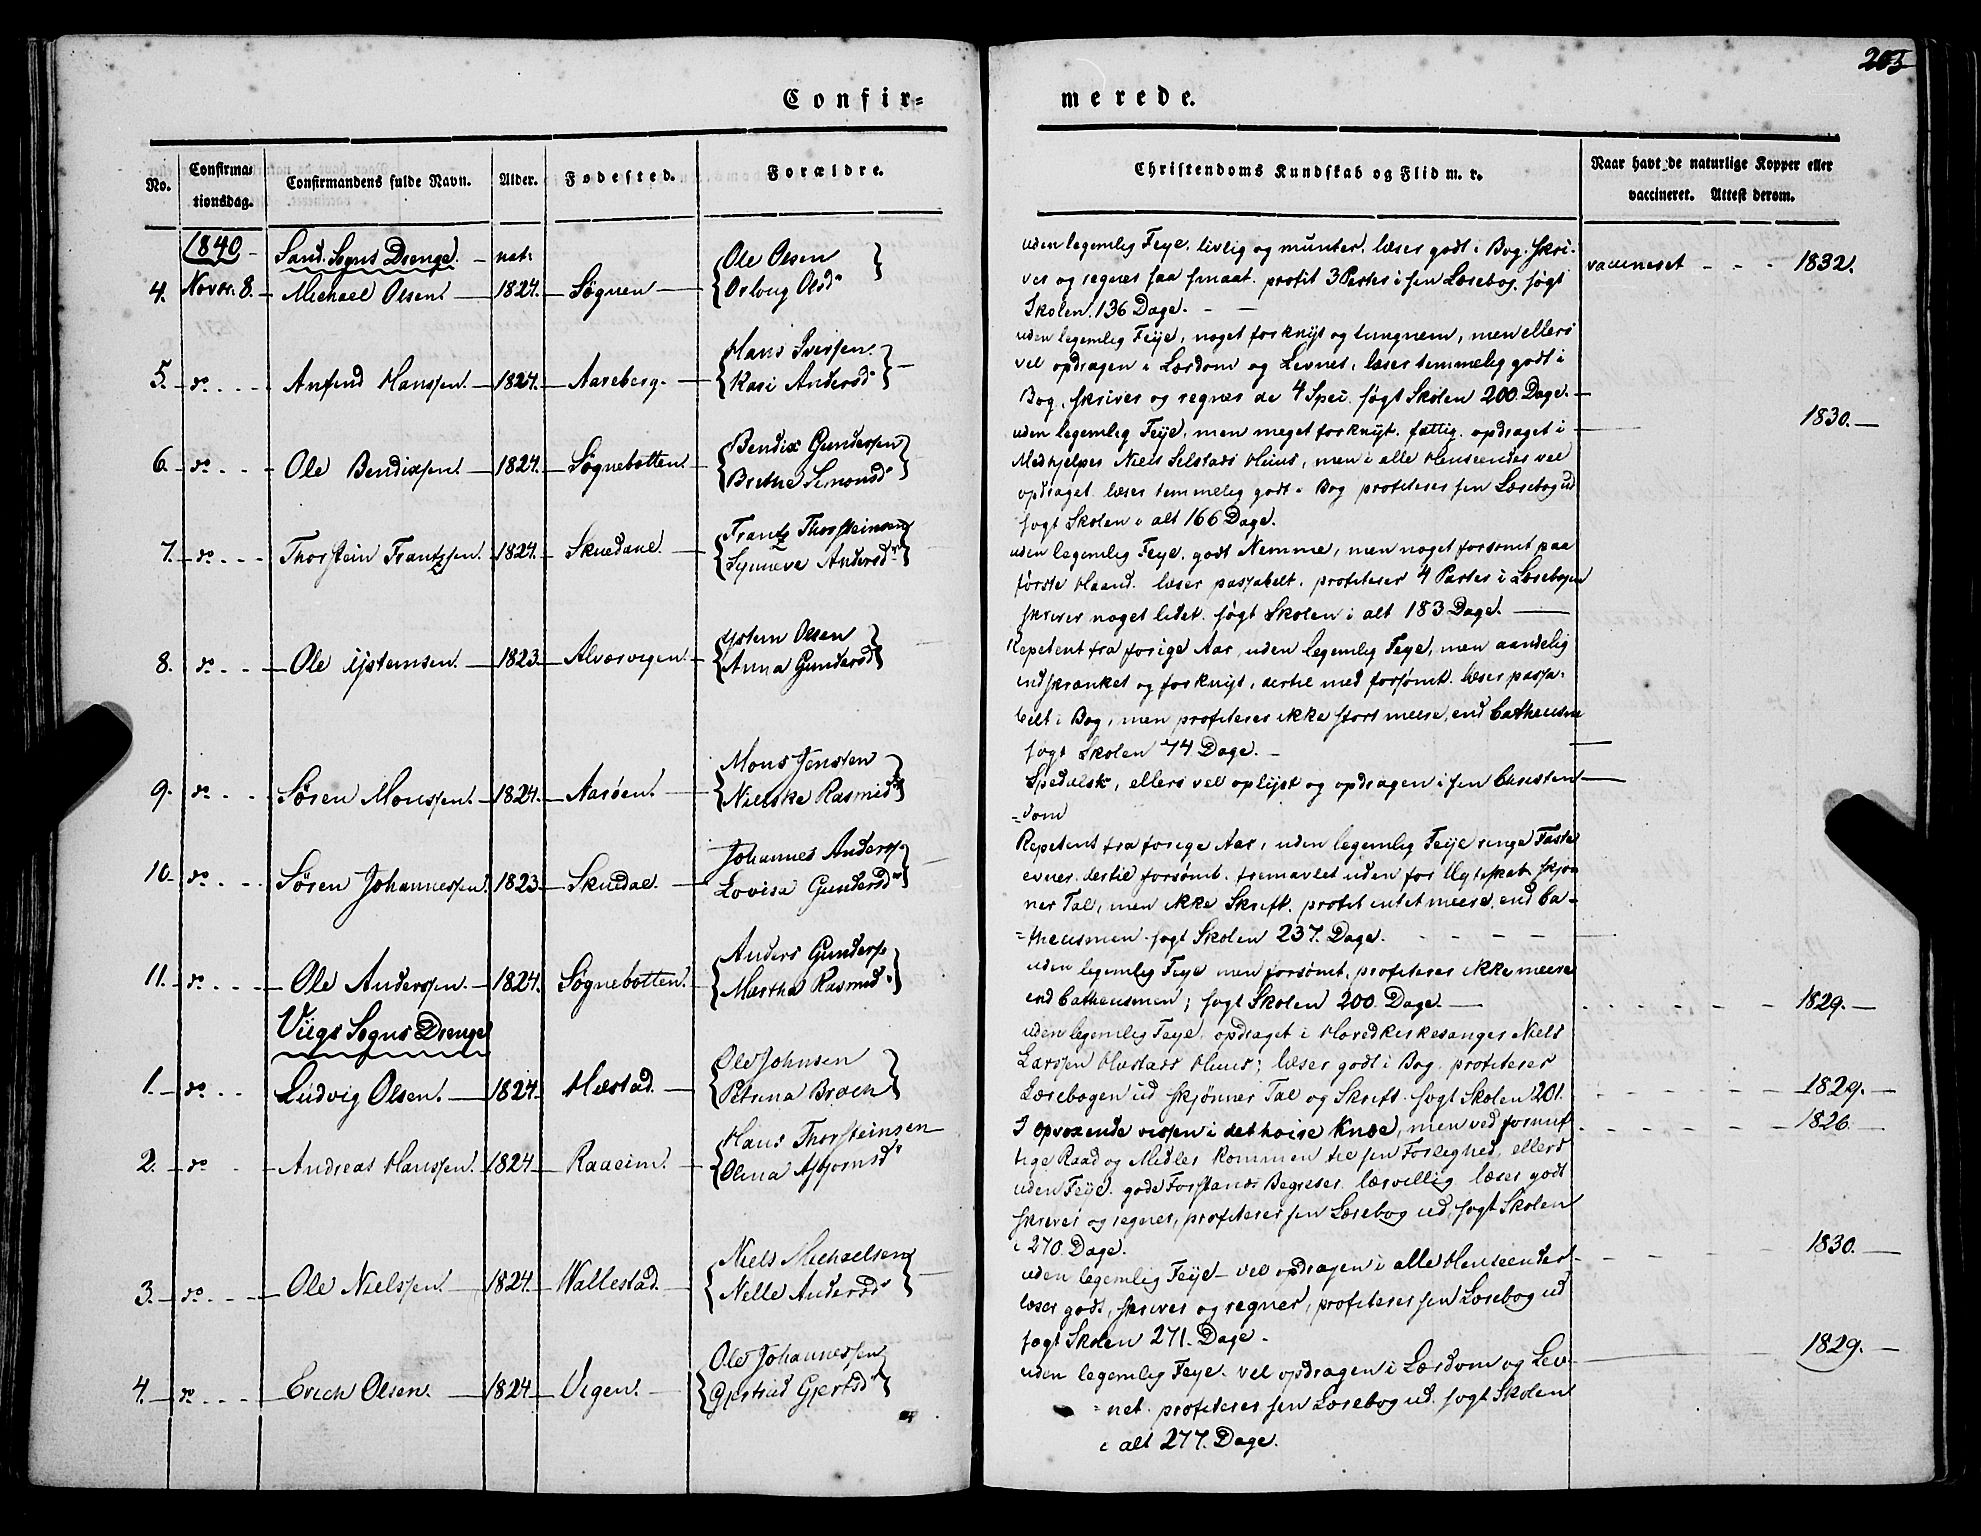 203
Confir=
merede.
No.
Confirma-
tionsdag.
Confirmandens fulde Navn.
Alder.
Fødested.
Forældre.
Christendoms Kundskab og Flid m. r.
Naar havt de naturlige Kopper eller
vaccineret. Attest derom.
1840
Sand. Sogns Drenge. nat:
4. Novbr. 8. Michael Olsen. 1824. Søgnen
Ole Olsen
Oslaug Olsd
uden legemlig Feye, livlig og munter, læser godt i Bog, skri-
ver og regner saa smaat. profit. 3 Parter i sin Læsebog, søgt
Skolen. 136 Dage.
vaccineret 1832.
5. do Anfind Hanssen. 1824. Aareberg.
Hans Iversen.
Kari Andersd
uden legemlig Feye, noget forknyt og tungnem, men ellers
vel opdragen i Lærdom og Levnet, læser temmelig godt i
Bog, skriver og regner de 4 Spec. søgt Skolen 200 Dage.
6. do Ole Bendixsen. 1824. Søgnebotten.
Bendix Gundersen
Brithe Simonsd
uden legemlig Feye, men meget forknyt. fattig. opdraget i
Medhjelper Niels Selstads Huus, men i alle Henseender vel
opdraget. læser temmelig godt i Bog profiterer sin Læsebog ud
søgt Skolen i alt 166 Dage.
1830.
7. do Thorstein Frantzsen. 1824. Skuedaul.
Frantz Thorsteinsen
Synneve Andersd
uden legemlig Feye, godt Nemme, men noget forsømt paa
første Haand. læser passabelt. profiterer 4 Parter i Læsebogen
skriver noget lidet. søgt Skolen i alt 183 Dage.
8. do Ole Ijsteinsen. 1823. Alversvigen.
Ijstein Olsen
Anna Gundersd
Repetent fra forige Aar, uden legemlig Feye, men aandelig
indskrænket og forknyt, dertil med forsømt. læser passa-
belt i Bog, men profiterer ikke stort meere, end Cathecisme
søgt Skolen 74 Dage.
9. do Søren Monssen. 1824. Aarøen.
Mons Jensten
Nilske Rasmusd
Spedalsk, ellers vel oplyst og opdragen i sin Christen-
=dom
10. do Søren Johannessen. 1823 Skuedal.
Johannes Anders.
Lovisa Gundersd
Repetent fra forige Aar, uden legemlig Feye ringe Fatte
evner. dertil forsømt. fremavlet uden for Ægteskab. skjøn
ner Tal, men ikke Skrift. profit. intet meere, end Ca-
=thecismen. søgt Skolen 237. Dage.
11. do Ole Anderssen. 1824. Søgnebotten.
Anders Gunders
Martha Rasmusd
uden legemlig Feye men forsømt, profiterer ikke meere
end Cathecismen; søgt Skolen 200 Dage.
1829.
Viigs Sogns Drenge
1. do Ludvig Olsen. 1824. Hæstad.
Ole Johnsen
Petrina Broch
uden legemlig Feye, opdraget i Hovedkirkesanger Niels
Larssen Hæstads Huus; læser godt i Bog. profiterer
Læsebogen ud skjønner Tal og Skrift. søgt Skolen 201.
1829.
2. do Andreas Hanssen. 1824 Raaeim.
Hans Thorsteinsen
Olina Asbjørnsd
I opvoxende vissen i det høire Knæ, men ved fornuf
tige Raad og Midler kommen til sin Førlighed, ellers
uden Feye. gode Forstands Begreber. lærvillig læser godt
skriver og regner, profiterer sin Læsebog ud, søgt Skolen
i 270. Dage.
1826.
3. do Ole Nielssen. 1824. Vallestad.
Niels Michaelsen
Nelle Andersd
uden legemlig Feye - vel opdragen i alle Henseender.
læser godt, skriver og regner, profiterer sin Læsebog ud
søgt Skolen 271. Dage.
1830.
4. do Erich Olsen. 1824. Vigen.
Ole Johannessen
Gjertrud Gjertsd
uden legemlig Feye. vel opdragen i Lærdom og Lev-
=net. profiterer sin Læsebog ud. søgt Skolen
i alt 277. Dage.
1829.